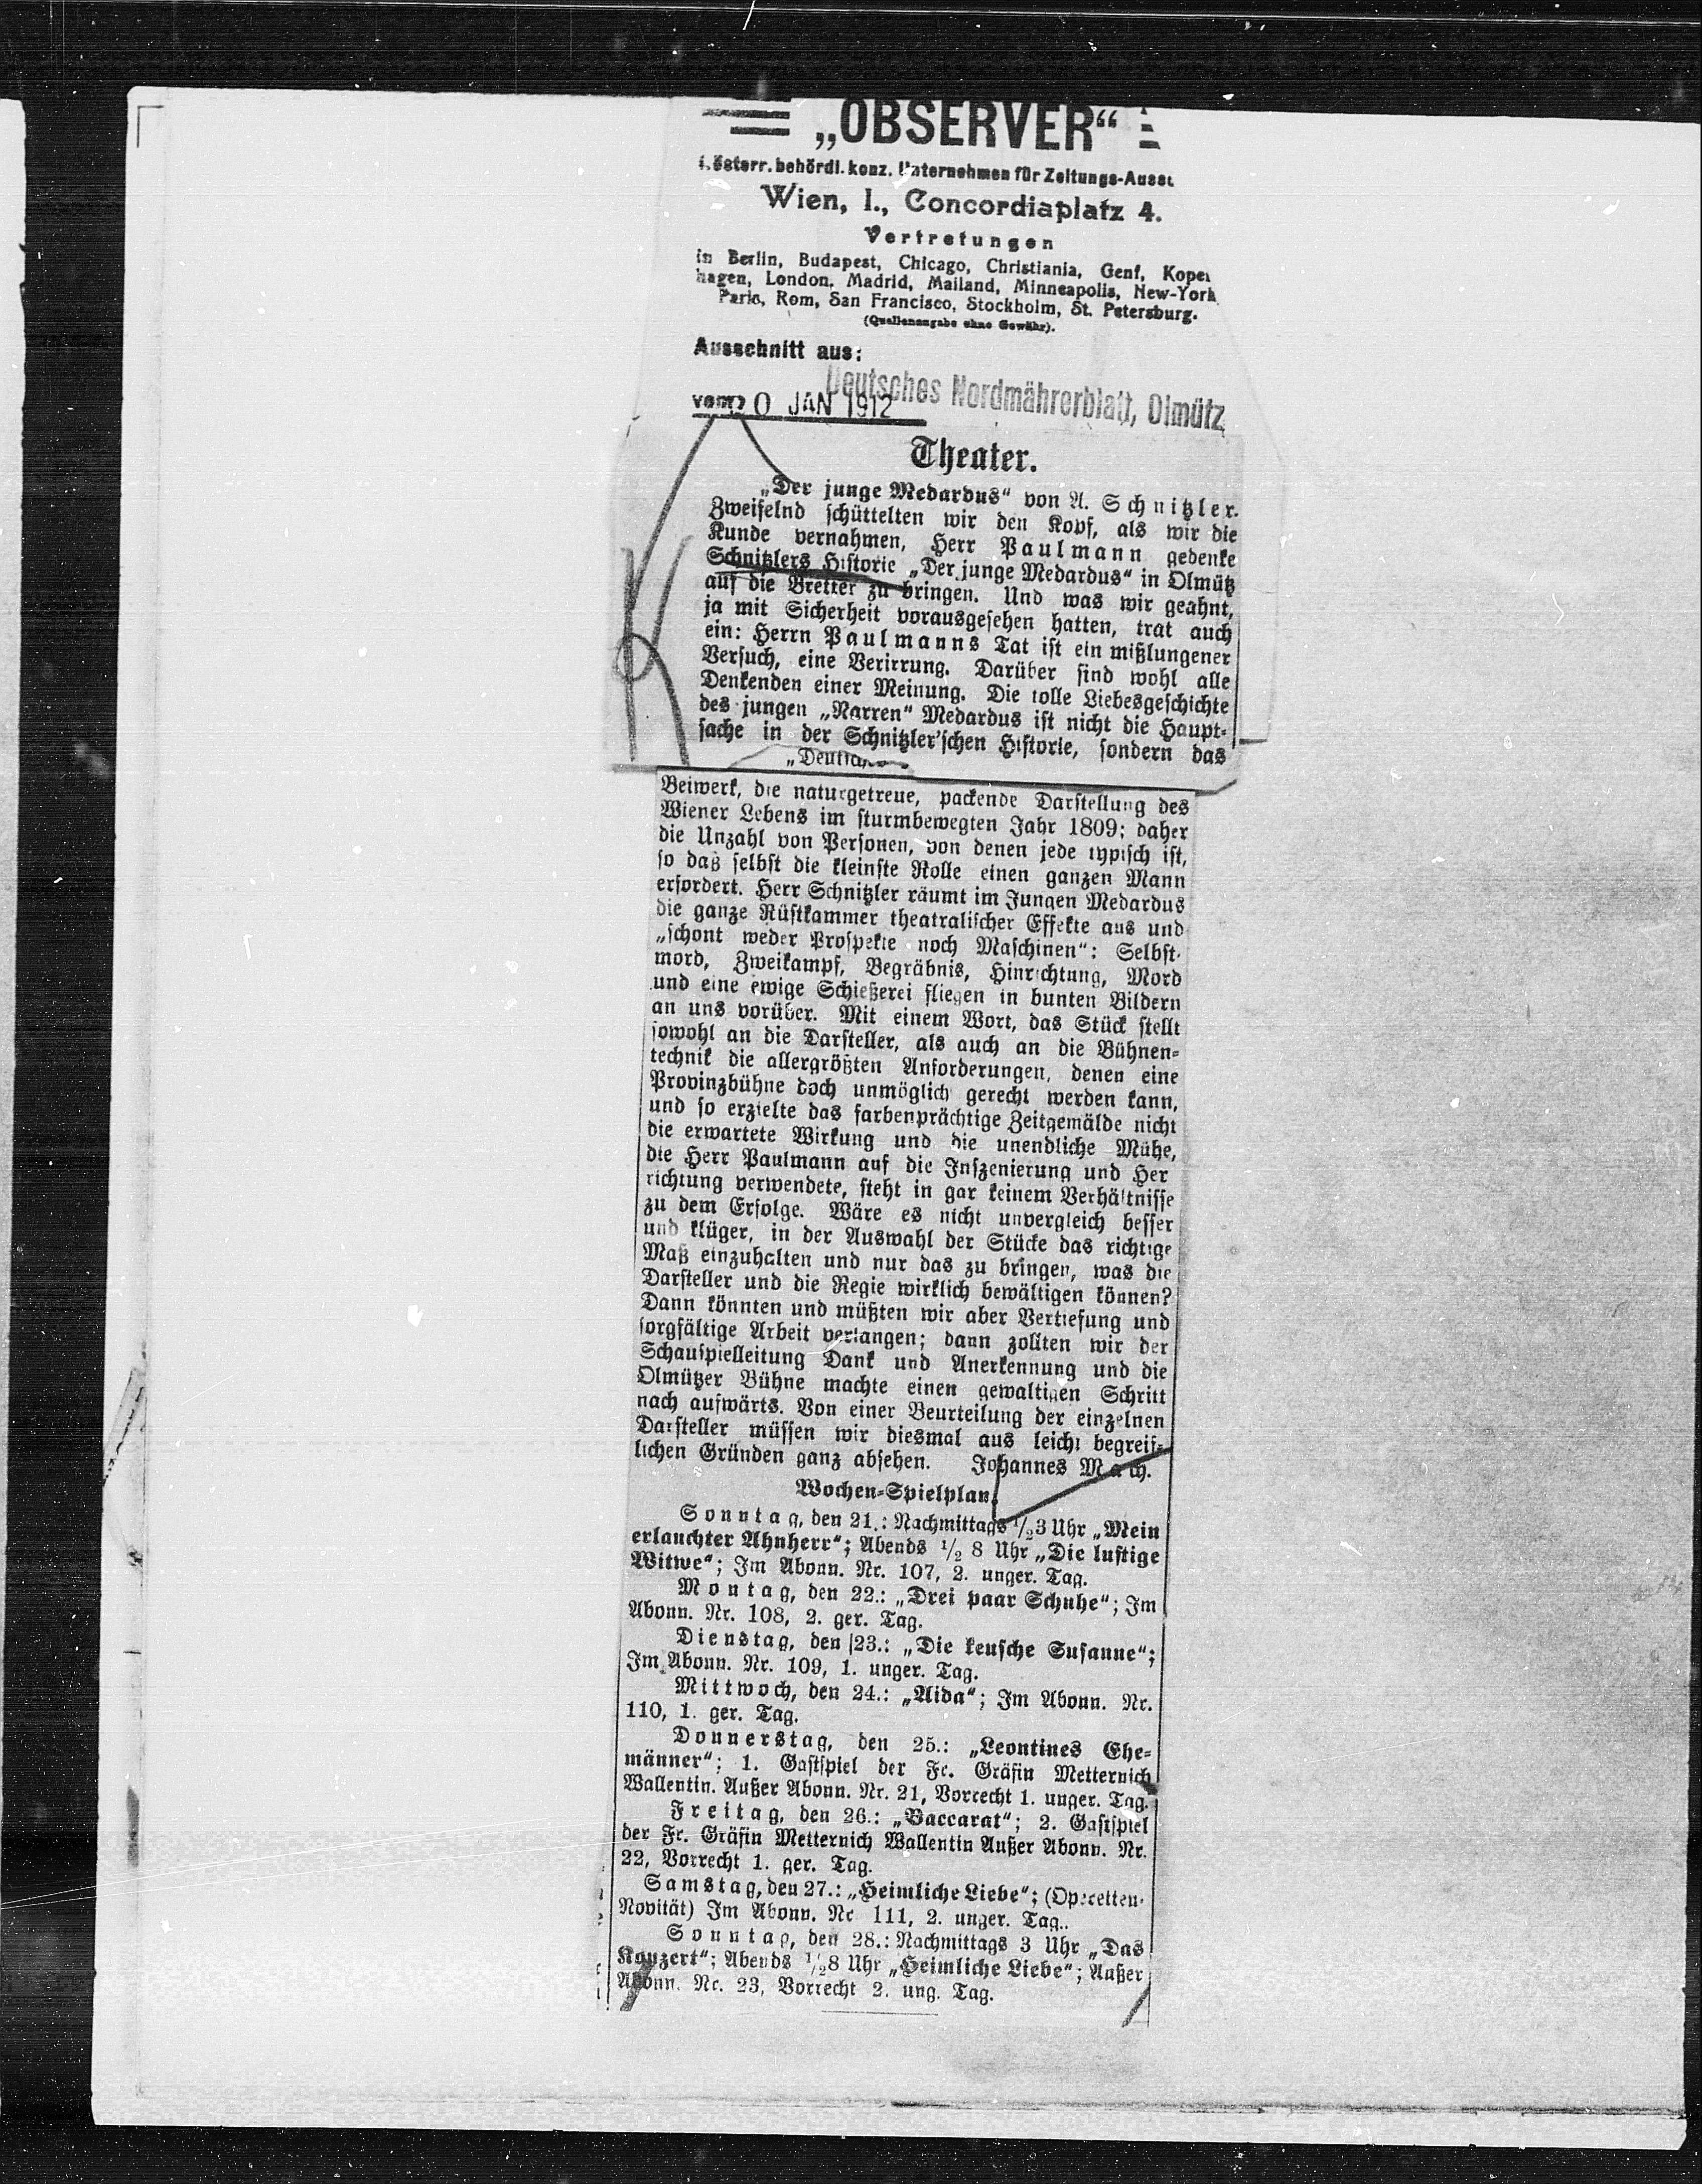 „OBSERVER“
I. österr. behördl. konz. Unternehmen für Zeitungs-Aussc
Wien, I., Concordiaplatz 4.
Vertretungen
in Berlin, Budapest, Chicago, Christiania, Genf, Kopen
hagen, London, Madrid, Mailand, Minneapolis, New-York
Paris, Rom, San Francisco, Stockholm, St. Petersburg.
(Quellenangabe ohne Gewähr).
Ausschnitt aus:
Deutsches Nordmährerblatt, Olmütz
vom 20 JAN 1912
Theater.
„Der junge Medardus“ von A. Schnitzler.
Zweifelnd schüttelten wir den Kopf, als wir die
Kunde vernahmen, Herr Paulmann gedenke
Schnitzlers Historie „Der junge Medardus“ in Olmütz
auf die Bretter zu bringen. Und was wir geahnt,
ja mit Sicherheit vorausgesehen hatten, trat auch
ein: Herrn Paulmanns Tat ist ein mißlungener
Versuch, eine Verirrung. Darüber sind wohl alle
Denkenden einer Meinung. Die tolle Liebesgeschichte
des jungen „Narren“ Medardus ist nicht die Haupt-
sache in der Schnitzler'schen Historie, sondern das
Beiwerk, die naturgetreue, packende Darstellung des
Wiener Lebens im sturmbewegten Jahr 1809; daher
die Unzahl von Personen, von denen jede typisch ist,
so daß selbst die kleinste Rolle einen ganzen Mann
erfordert. Herr Schnitzler räumt im Jungen Medardus
die ganze Rüstkammer theatralischer Effekte aus und
„schont weder Prospekte noch Maschinen“: Selbst-
mord, Zweikampf, Begräbnis, Hinrichtung, Mord
und eine ewige Schießerei fliegen in bunten Bildern
an uns vorüber. Mit einem Wort, das Stück stellt
sowohl an die Darsteller, als auch an die Bühnen-
technik die allergrößten Anforderungen, denen eine
Provinzbühne doch unmöglich gerecht werden kann,
und so erzielte das farbenprächtige Zeitgemälde nicht
die erwartete Wirkung und die unendliche Mühe,
die Herr Paulmann auf die Inszenierung und Her
richtung verwendete, steht in gar keinem Verhältnisse
zu dem Erfolge. Wäre es nicht unvergleich besser
und klüger, in der Auswahl der Stücke das richtige
Maß einzuhalten und nur das zu bringen, was die
Darsteller und die Regie wirklich bewältigen können?
Dann könnten und müßten wir aber Vertiefung und
sorgfältige Arbeit verlangen; dann zollten wir der
Schauspielleitung Dank und Anerkennung und die
Olmützer Bühne machte einen gewaltigen Schritt
nach aufwärts. Von einer Beurteilung der einzelnen
Darsteller müssen wir diesmal aus leicht begreif-
lichen Gründen ganz absehen. Johannes Mach.
Wochen-Spielplan.
Sonntag, den 21.: Nachmittags 1/2 3 Uhr „Mein
erlauchter Ahnherr“; Abends 1/2 8 Uhr „Die lustige
Witwe“; Im Abonn. Nr. 107, 2. unger. Tag.
Montag, den 22.: „Drei paar Schuhe“; Im
Abonn. Nr. 108, 2. ger. Tag.
Dienstag, den 23.: „Die keusche Susanne“;
Im Abonn. Nr. 109, 1. unger. Tag.
Mittwoch, den 24.: „Aida“; Im Abonn. Nr.
110, 1. ger. Tag.
Donnerstag, den 25.: „Leontines Ehe-
männer“; 1. Gastspiel der Fr. Gräfin Metternich
Wallentin. Außer Abonn. Nr. 21, Vorrecht 1. unger. Tag.
Freitag, den 26.: „Baccarat“; 2. Gastspiel
der Fr. Gräfin Metternich Wallentin Außer Abonn. Nr.
22, Vorrecht 1. ger. Tag.
Samstag, den 27.: „Heimliche Liebe“; (Operetten-
Novität) Im Abonn. Nr 111, 2. unger. Tag..
Sonntag, den 28.: Nachmittags 3 Uhr „Das
Konzert“; Abends 1/2 8 Uhr „Heimliche Liebe“; Außer
Abonn. Nr. 23, Vorrecht 2. ung. Tag.